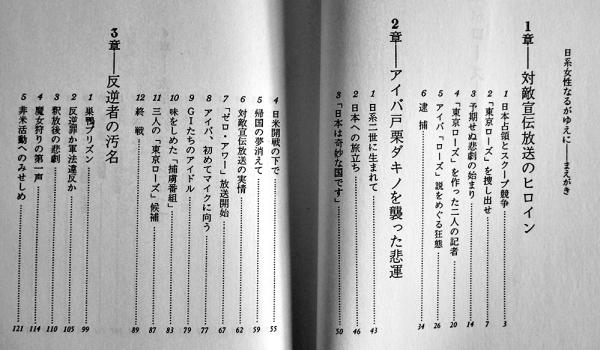 日系女性なるがゆえに——まえがき
1章——対敵宣伝放送のヒロイン
1 日本占領とスクープ競争 3
2 「東京ローズ」を捜し出せ 7
3 予期せぬ悲劇の始まり 14
4 「東京ローズ」を作った二人の記者 20
5 アイバ「ローズ」説をめぐる狂態 26
6 逮捕 34
2章——アイバ戸栗ダキノを襲った悲運
1 日系二世に生まれて 43
2 日本への旅立ち 46
3 「日本は奇妙な国です」 50
4 日米開戦の下で 55
5 帰国の夢消えて 59
6 対敵宣伝放送の実情 62
7 「ゼロ・アワー」放送開始 67
8 アイバ、初めてマイクに向う 77
9 GIたちのアイドル 79
10 味をしめた「捕虜番組」 83
11 三人の「東京ローズ」候補 87
12 終戦 89
3章——反逆者の汚名
1 巣鴨プリズン 99
2 反逆罪か軍法違反か 105
3 釈放後の悲劇 110
4 魔女狩りの第一声 114
5 非米活動へのみせしめ 121